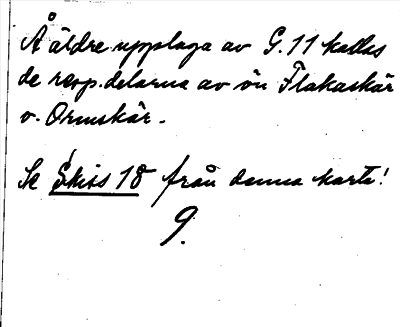 Å äldre upplaga av G. 11 kallas
de resp. delarna av ön Flakaskär
o. Ormskär.
Se Skiss 18 från denna karta!
9.